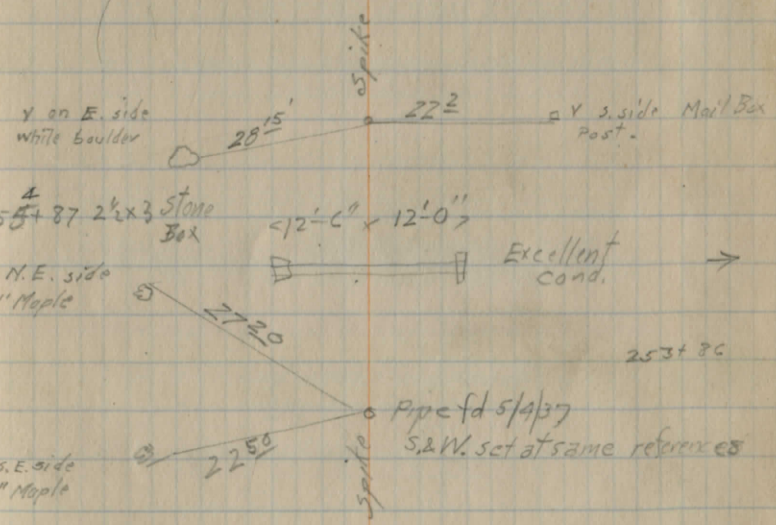 Spike
Y on E. side
White boulder
28 15'
22 2
Y S. side Mail Box
Post.
+ 87 2½ x 3 Stone
Box
<12'-6" x 12'-0">
Excellent
cond.
N.E. side
" Maple
27 20
253+86
Pipe fd 5/4/37
S.&W. set at same references
22 50
S.E. side
" Maple
Spike